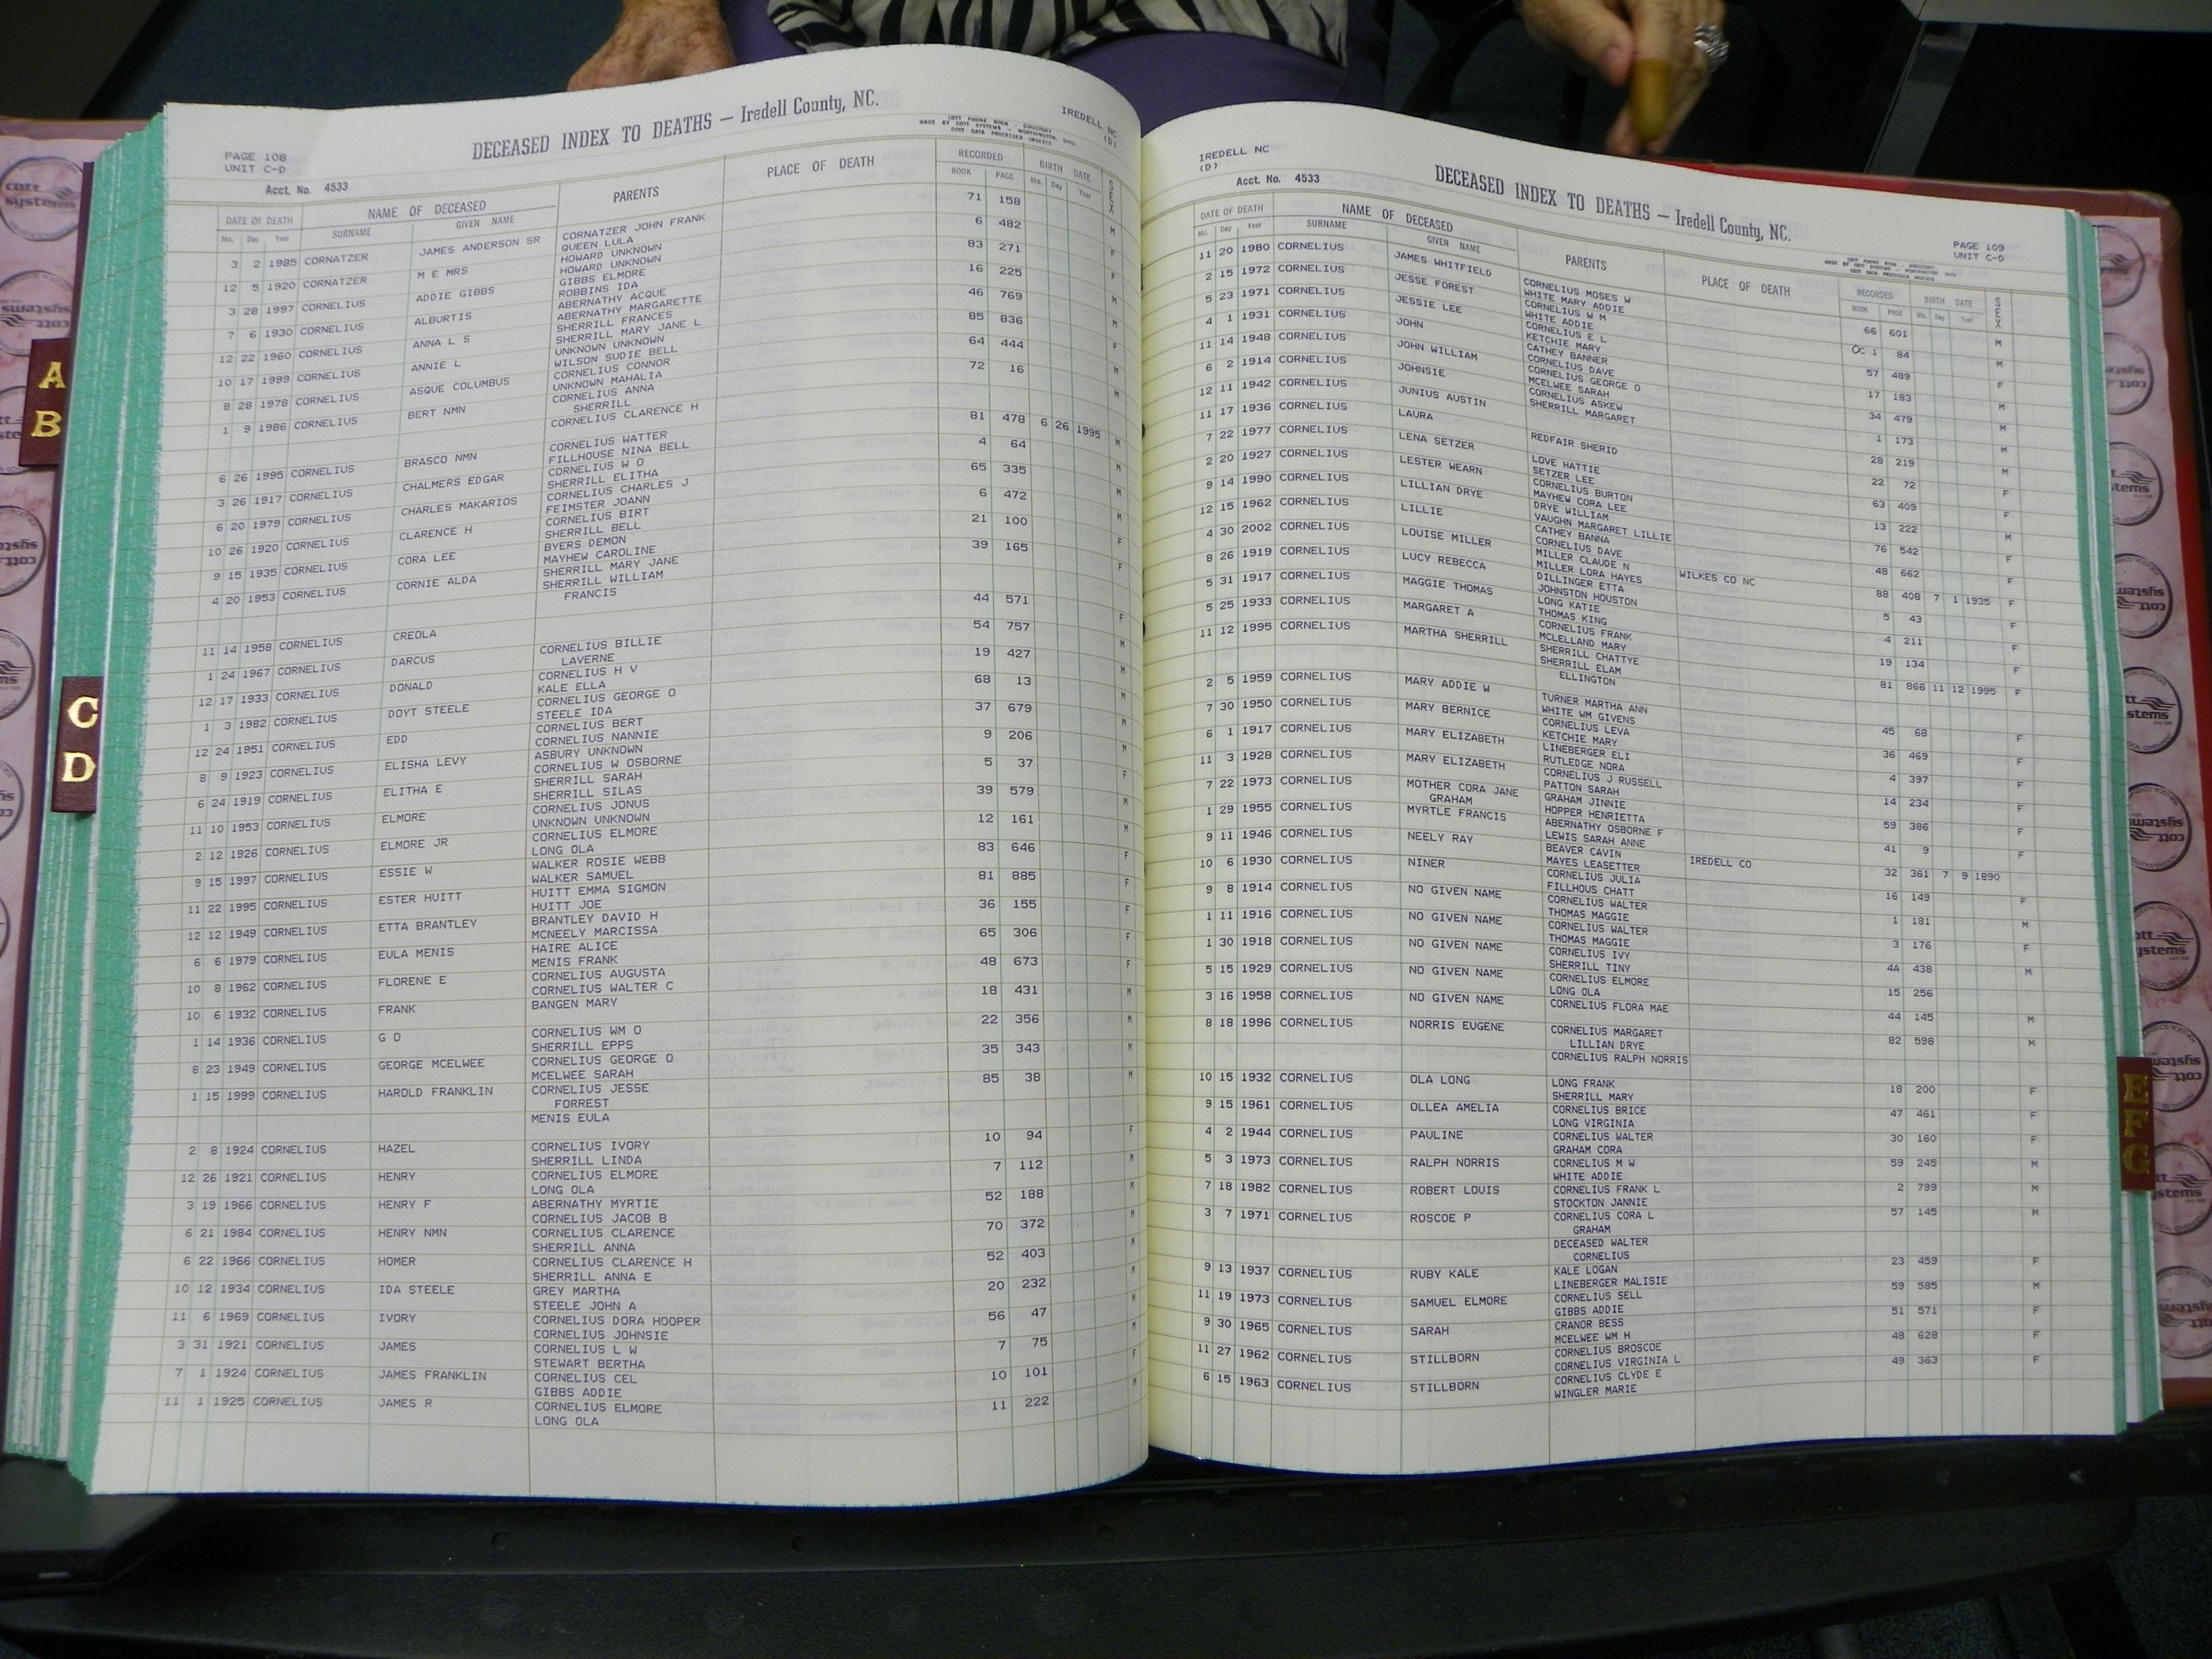 PAGE 108
UNIT C-D
DECEASED INDEX TO DEATHS — Iredell County, NC.
IREDELL NC
(D)
COTT PHONE BOOK - DIRECTORY
MADE BY COTT SYSTEMS - WORTHINGTON, OHIO
COTT DATA PROCESSED INDEXES
Acct. No. 4533
DATE OF DEATH NAME OF DECEASED PARENTS PLACE OF DEATH RECORDED BIRTH DATE SEX
Mo. Day Year SURNAME GIVEN NAME BOOK PAGE Mo. Day Year
3 2 1985 CORNATZER JAMES ANDERSON SR CORNATZER JOHN FRANK 71 158 M
QUEEN LULA
12 5 1920 CORNATZER M E MRS HOWARD UNKNOWN 6 482 F
HOWARD UNKNOWN
3 28 1997 CORNELIUS ADDIE GIBBS GIBBS ELMORE 83 271 F
ROBBINS IDA
7 6 1930 CORNELIUS ALBURTIS ABERNATHY ACQUE 16 225 M
ABERNATHY MARGARETTE
12 22 1960 CORNELIUS ANNA L S SHERRILL FRANCES 46 769 M
SHERRILL MARY JANE L
10 17 1999 CORNELIUS ANNIE L UNKNOWN UNKNOWN 85 836 F
WILSON SUDIE BELL
8 28 1978 CORNELIUS ASQUE COLUMBUS CORNELIUS CONNOR 64 444 M
UNKNOWN MAHALIA
1 9 1986 CORNELIUS BERT NMN CORNELIUS ANNA 72 16 M
SHERRILL
CORNELIUS CLARENCE H
6 26 1995 CORNELIUS BRASCO NMN CORNELIUS WATTER 81 478 6 26 1995 M
FILLHOUSE NINA BELL
3 26 1917 CORNELIUS CHALMERS EDGAR CORNELIUS W O 4 64 M
SHERRILL ELITHA
6 20 1979 CORNELIUS CHARLES MAKARIOS CORNELIUS CHARLES J 65 335 M
FEIMSTER JOANN
10 26 1920 CORNELIUS CLARENCE H CORNELIUS BIRT 6 472 M
SHERRILL BELL
9 15 1935 CORNELIUS CORA LEE BYERS DEMON 21 100 F
MAYHEW CAROLINE
4 20 1953 CORNELIUS CORNIE ALDA SHERRILL MARY JANE 39 165 F
SHERRILL WILLIAM
FRANCIS
11 14 1958 CORNELIUS CREOLA CORNELIUS BILLIE 44 571 F
LAVERNE
1 24 1967 CORNELIUS DARCUS CORNELIUS H V 54 757 M
KALE ELLA
12 17 1933 CORNELIUS DONALD CORNELIUS GEORGE O 19 427 M
STEELE IDA
1 3 1982 CORNELIUS DOYT STEELE CORNELIUS BERT 68 13 M
CORNELIUS NANNIE
12 24 1951 CORNELIUS EDD ASBURY UNKNOWN 37 679 M
CORNELIUS W OSBORNE
8 9 1923 CORNELIUS ELISHA LEVY SHERRILL SARAH 9 206 M
SHERRILL SILAS
6 24 1919 CORNELIUS ELITHA E CORNELIUS JONUS 5 37 F
UNKNOWN UNKNOWN
11 10 1953 CORNELIUS ELMORE CORNELIUS ELMORE 39 579 M
LONG OLA
2 12 1926 CORNELIUS ELMORE JR WALKER ROSIE WEBB 12 161 M
WALKER SAMUEL
9 15 1997 CORNELIUS ESSIE W HUITT EMMA SIGMON 83 646 F
HUITT JOE
11 22 1995 CORNELIUS ESTER HUITT BRANTLEY DAVID H 81 885 F
MCNEELY MARCISSA
12 12 1949 CORNELIUS ETTA BRANTLEY HAIRE ALICE 36 155 F
MENIS FRANK
6 6 1979 CORNELIUS EULA MENIS CORNELIUS AUGUSTA 65 306 F
CORNELIUS WALTER C
10 8 1962 CORNELIUS FLORENE E BANGEN MARY 48 673 F
10 6 1932 CORNELIUS FRANK 18 431 M
1 14 1936 CORNELIUS G O CORNELIUS WM O 22 356 M
SHERRILL EPPS
8 23 1949 CORNELIUS GEORGE MCELWEE CORNELIUS GEORGE O 35 343 M
MCELWEE SARAH
1 15 1999 CORNELIUS HAROLD FRANKLIN CORNELIUS JESSE 85 38 M
FORREST
MENIS EULA
2 8 1924 CORNELIUS HAZEL CORNELIUS IVORY 10 94 F
SHERRILL LINDA
12 26 1921 CORNELIUS HENRY CORNELIUS ELMORE 7 112 M
LONG OLA
3 19 1966 CORNELIUS HENRY F ABERNATHY MYRTIE 52 188 M
CORNELIUS JACOB B
6 21 1984 CORNELIUS HENRY NMN CORNELIUS CLARENCE 70 372 M
SHERRILL ANNA
6 22 1966 CORNELIUS HOMER CORNELIUS CLARENCE H 52 403 M
SHERRILL ANNA E
10 12 1934 CORNELIUS IDA STEELE GREY MARTHA 20 232 M
STEELE JOHN A
11 6 1969 CORNELIUS IVORY CORNELIUS DORA HOOPER 56 47 M
CORNELIUS JOHNSIE
3 31 1921 CORNELIUS JAMES CORNELIUS L W 7 75 M
STEWART BERTHA
7 1 1924 CORNELIUS JAMES FRANKLIN CORNELIUS CEL 10 101 F
GIBBS ADDIE
11 1 1925 CORNELIUS JAMES R CORNELIUS ELMORE 11 222 M
LONG OLA
IREDELL NC
(D)
Acct. No. 4533
DECEASED INDEX TO DEATHS — Iredell County, NC.
PAGE 109
UNIT C-D
COTT PHONE BOOK - DIRECTORY
MADE BY COTT SYSTEMS - WORTHINGTON, OHIO
COTT DATA PROCESSED INDEXES
DATE OF DEATH NAME OF DECEASED PARENTS PLACE OF DEATH RECORDED BIRTH DATE SEX
Mo. Day Year SURNAME GIVEN NAME BOOK PAGE Mo. Day Year
11 20 1980 CORNELIUS JAMES WHITFIELD CORNELIUS MOSES W 66 601 M
WHITE MARY ADDIE
2 15 1972 CORNELIUS JESSE FOREST CORNELIUS W M OC 1 84 M
WHITE ADDIE
5 23 1971 CORNELIUS JESSIE LEE CORNELIUS E L 57 489 F
KETCHIE MARY
4 1 1931 CORNELIUS JOHN CATHEY BANNER 17 183 M
CORNELIUS DAVE
11 14 1948 CORNELIUS JOHN WILLIAM CORNELIUS GEORGE O 34 479 M
MCELWEE SARAH
6 2 1914 CORNELIUS JOHNSIE CORNELIUS ASKEW 1 173 M
SHERRILL MARGARET
12 11 1942 CORNELIUS JUNIUS AUSTIN 28 219 M
11 17 1936 CORNELIUS LAURA REDFAIR SHERID 22 72 F
7 22 1977 CORNELIUS LENA SETZER LOVE HATTIE 63 409 F
SETZER LEE
2 20 1927 CORNELIUS LESTER WEARN CORNELIUS BURTON 13 222 M
MAYHEW CORA LEE
9 14 1990 CORNELIUS LILLIAN DRYE DRYE WILLIAM 76 542 F
VAUGHN MARGARET LILLIE
12 15 1962 CORNELIUS LILLIE CATHEY BANNA 48 662 F
CORNELIUS DAVE
4 30 2002 CORNELIUS LOUISE MILLER MILLER CLAUDE N WILKES CO NC 88 408 7 1 1935 F
MILLER LORA HAYES
8 26 1919 CORNELIUS LUCY REBECCA DILLINGER ETTA 5 43 F
JOHNSTON HOUSTON
5 31 1917 CORNELIUS MAGGIE THOMAS LONG KATIE 4 211 F
THOMAS KING
5 25 1933 CORNELIUS MARGARET A CORNELIUS FRANK 19 134 F
MCLELLAND MARY
11 12 1995 CORNELIUS MARTHA SHERRILL SHERRILL CHATTYE 81 866 11 12 1995 F
SHERRILL ELAM
ELLINGTON
2 5 1959 CORNELIUS MARY ADDIE W TURNER MARTHA ANN 45 68 F
WHITE WM GIVENS
7 30 1950 CORNELIUS MARY BERNICE CORNELIUS LEVA 36 469 F
KETCHIE MARY
6 1 1917 CORNELIUS MARY ELIZABETH LINEBERGER ELI 4 397 F
RUTLEDGE NORA
11 3 1928 CORNELIUS MARY ELIZABETH CORNELIUS J RUSSELL 14 234 F
PATTON SARAH
7 22 1973 CORNELIUS MOTHER CORA JANE GRAHAM JINNIE 59 386 F
GRAHAM HOPPER HENRIETTA
1 29 1955 CORNELIUS MYRTLE FRANCIS ABERNATHY OSBORNE F 41 9 F
LEWIS SARAH ANNE
9 11 1946 CORNELIUS NEELY RAY BEAVER CAVIN IREDELL CO 32 361 7 9 1890
MAYES LEASETTER
10 6 1930 CORNELIUS NINER CORNELIUS JULIA 16 149 F
FILLHOUS CHATT
9 8 1914 CORNELIUS NO GIVEN NAME CORNELIUS WALTER 1 181 M
THOMAS MAGGIE
1 11 1916 CORNELIUS NO GIVEN NAME CORNELIUS WALTER 3 176 F
THOMAS MAGGIE
1 30 1918 CORNELIUS NO GIVEN NAME CORNELIUS IVY 4A 438 M
SHERRILL TINY
5 15 1929 CORNELIUS NO GIVEN NAME CORNELIUS ELMORE 15 256
LONG OLA
3 16 1958 CORNELIUS NO GIVEN NAME CORNELIUS FLORA MAE 44 145 M
8 18 1996 CORNELIUS NORRIS EUGENE CORNELIUS MARGARET 82 598 M
LILLIAN DRYE
CORNELIUS RALPH NORRIS
10 15 1932 CORNELIUS OLA LONG LONG FRANK 18 200 F
SHERRILL MARY
9 15 1961 CORNELIUS OLLEA AMELIA CORNELIUS BRICE 47 461 F
LONG VIRGINIA
4 2 1944 CORNELIUS PAULINE CORNELIUS WALTER 30 160 F
GRAHAM CORA
5 3 1973 CORNELIUS RALPH NORRIS CORNELIUS M W 59 245 M
WHITE ADDIE
7 18 1982 CORNELIUS ROBERT LOUIS CORNELIUS FRANK L 2 799 M
STOCKTON JANNIE
3 7 1971 CORNELIUS ROSCOE P CORNELIUS CORA L 57 145 M
GRAHAM
DECEASED WALTER
CORNELIUS
9 13 1937 CORNELIUS RUBY KALE KALE LOGAN 23 459 F
LINEBERGER MALISIE
11 19 1973 CORNELIUS SAMUEL ELMORE CORNELIUS SELL 59 585 M
GIBBS ADDIE
9 30 1965 CORNELIUS SARAH CRANOR BESS 51 571 F
MCELWEE WM H
11 27 1962 CORNELIUS STILLBORN CORNELIUS BROSCOE 48 628 F
CORNELIUS VIRGINIA L
6 15 1963 CORNELIUS STILLBORN CORNELIUS CLYDE E 49 363 F
WINGLER MARIE
A
B
C
D
E
F
G
cott
systems